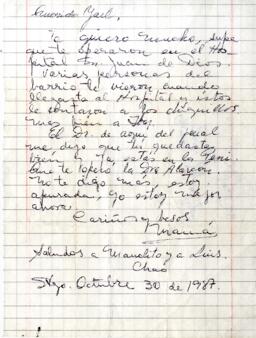 Querido Yael,
Te quiero mucho, supe
que te operaron en el Hos
pital Sn. Juan de Dios.
Varias personas del
barrio te vieron cuando
llegaste al Hospital y éstos
le contaron a los chiquillos
El Dr. de aquí del penal
me dijo que tú quedastes
bien y ya estás en la Peni.
Que te operó la Dra Alarcón.
No te digo más, estoy
apurada, yo estoy mejor
ahora.
Cariños y besos
Mamá
Saludos a Manolito y a Luis.
Chao
Stgo. Octubre 30 de 1987.